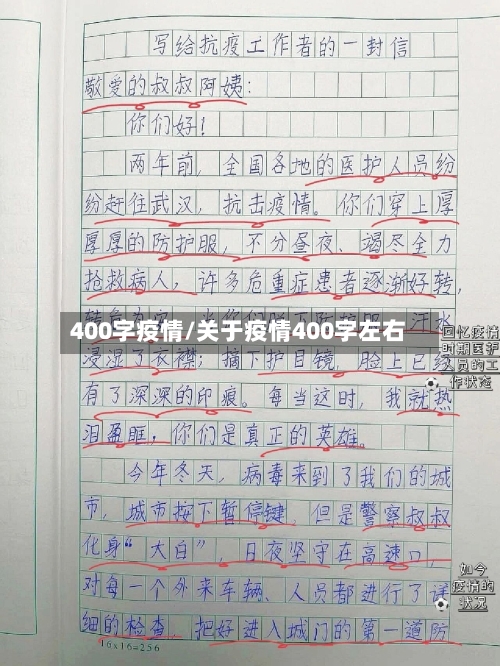 写给抗疫工作者的一封信
敬爱的叔叔阿姨：
你们好！
两年前，全国各地的医护人员纷
纷赶往武汉，抗击疫情。你们穿上厚
厚厚的防护服，不分昼夜、竭尽全力
抢救病人，许多危重症患者逐渐好转，
400字疫情/关于疫情400字左右
汗水
浸湿了衣襟；摘下护目镜，脸上已经
有了深深的印痕。每当这时，我就热
泪盈眶，你们是真正的英雄。
今年冬天，病毒来到了我们的城
市，城市按下暂停键，但是警察叔叔
化身“大白”，日夜坚守在高速口，
对每一个外来车辆、人员都进行了详
细的检查，把好进入城门的第一道防
16x16=256
回忆疫情
时期医护
人员的工
作状态
如今
疫情的
状况